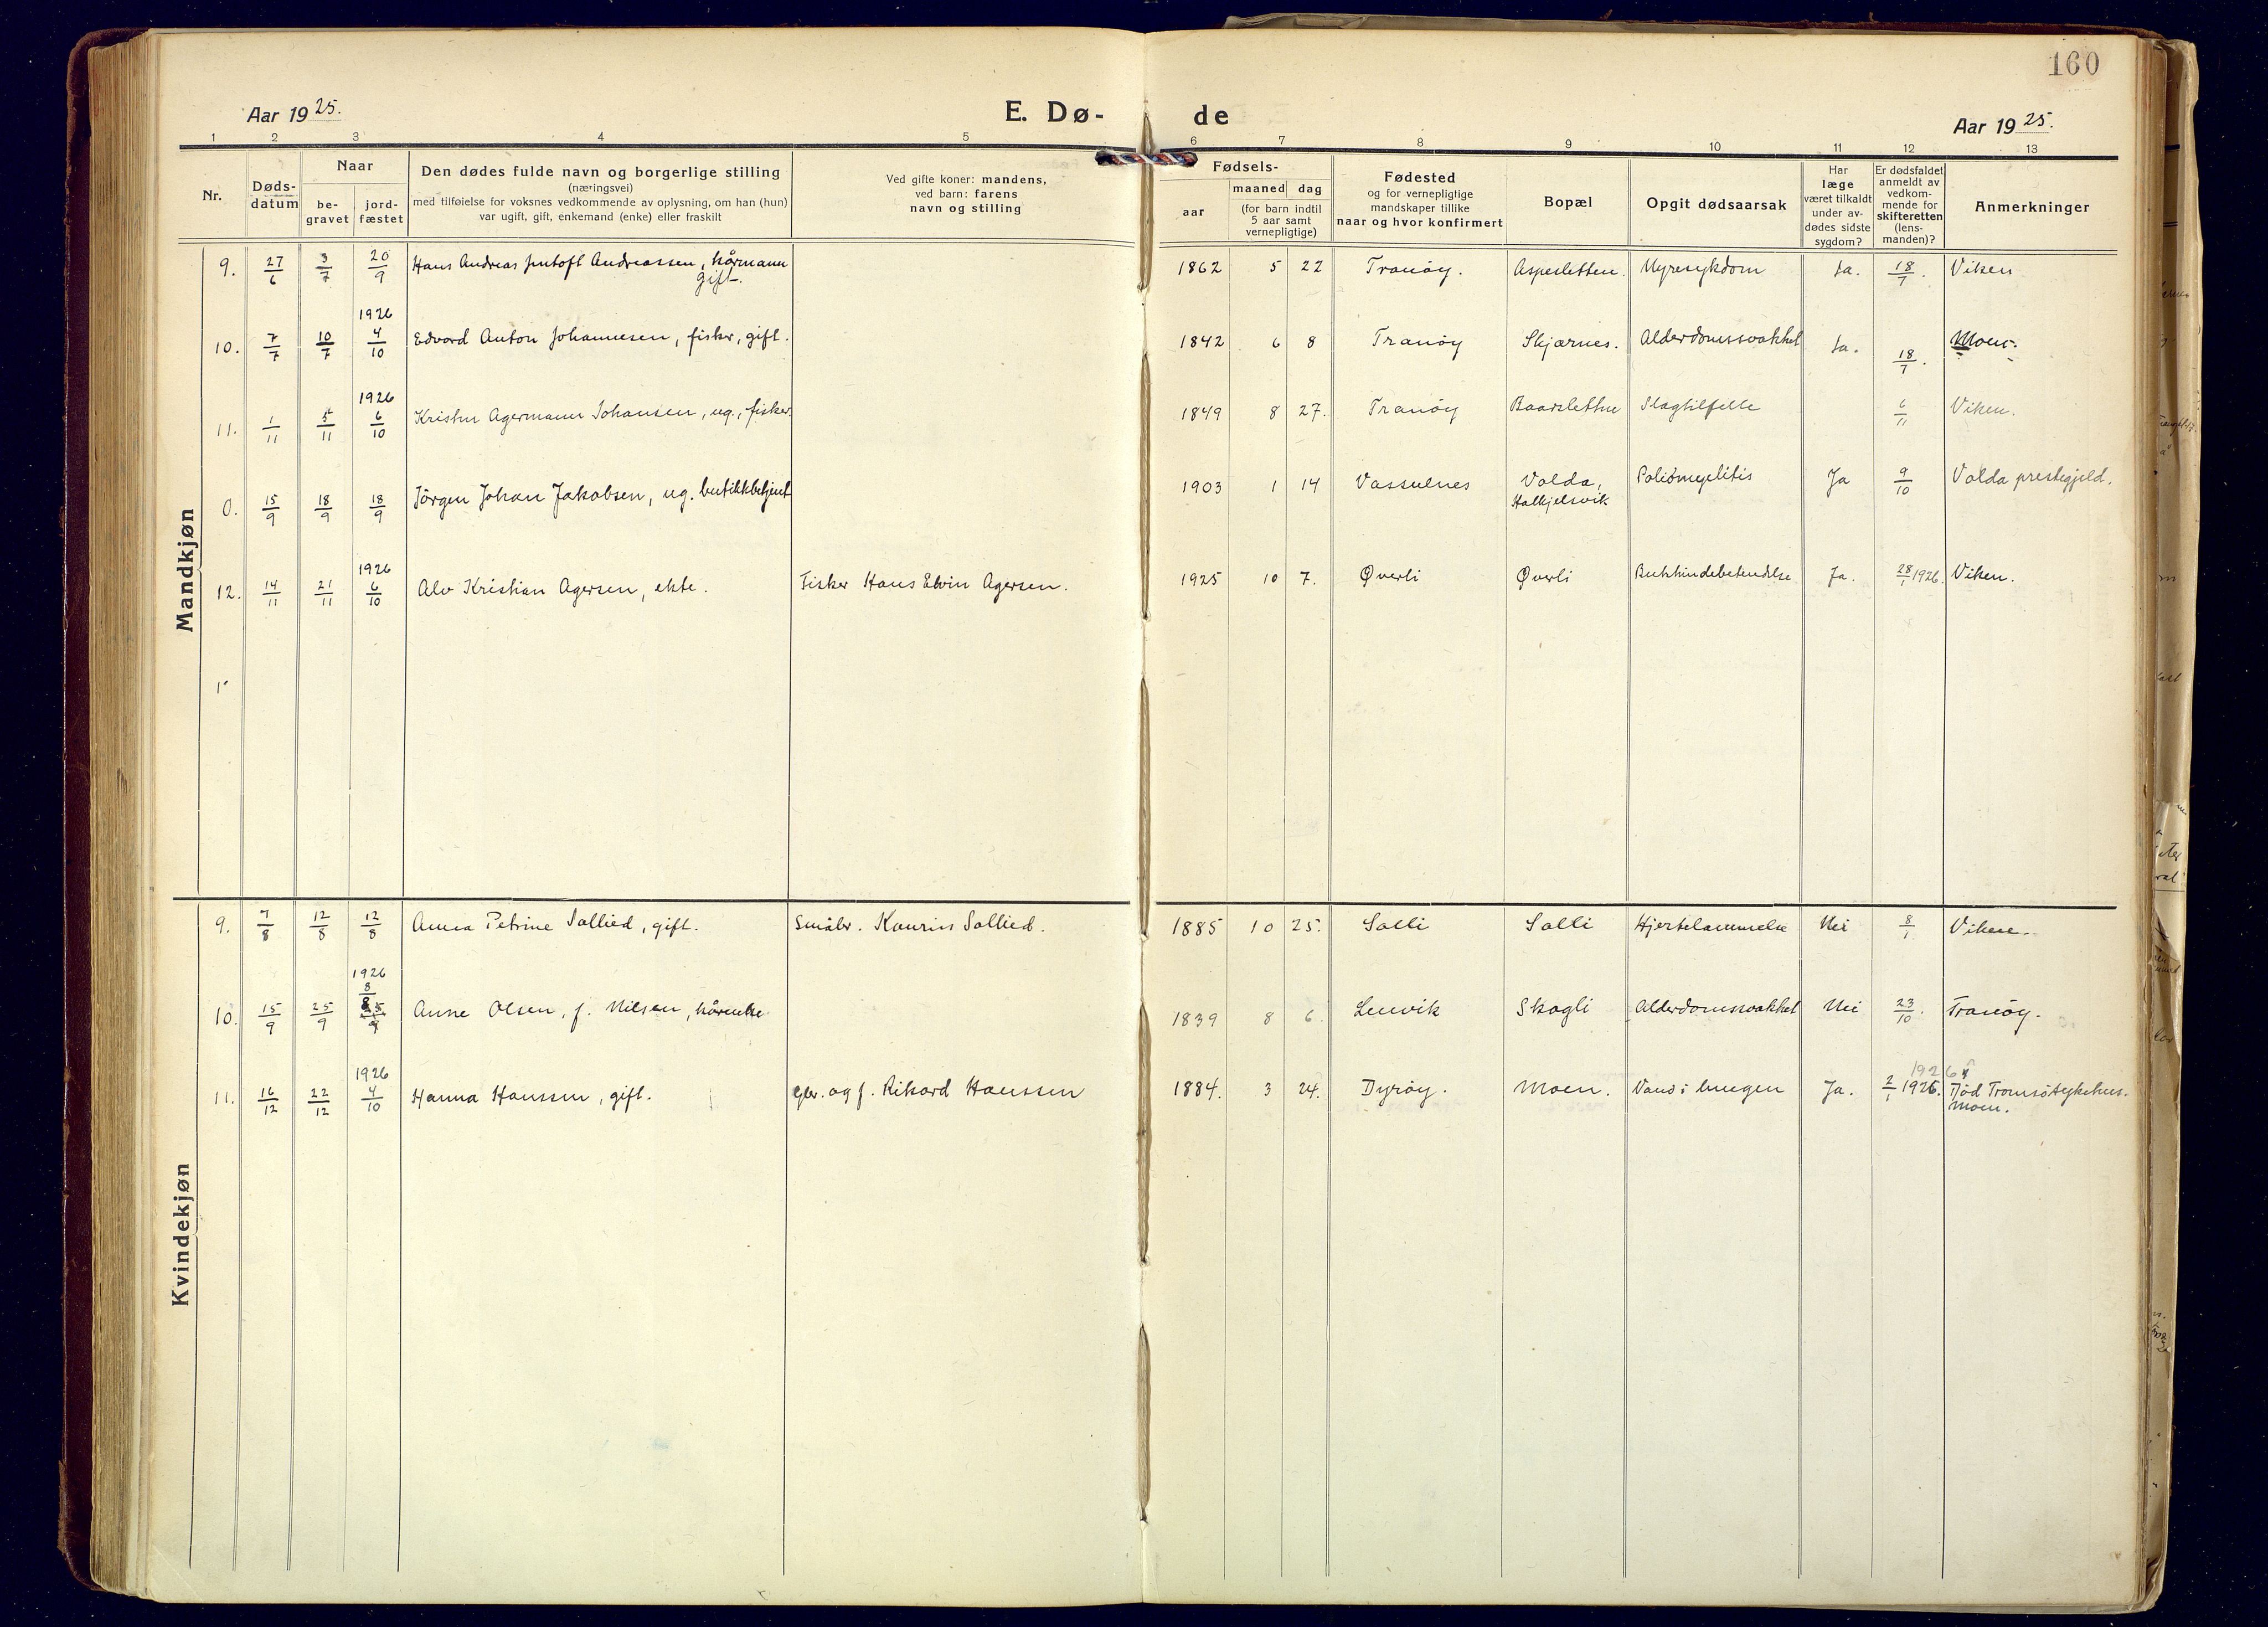 160
Aar 1925.
E. Dø-
de
Aar 1925.
1 2 3 4 5 6 7 8 9 10 11 12 13
Nr.
Døds-
datum
Naar
be-
gravet
jord-
fæstet
Den dødes fulde navn og borgerlige stilling
(næringsvei)
med tilføielse for voksnes vedkommende av oplysning, om han (hun)
var ugift, gift, enkemand (enke) eller fraskilt
Ved gifte koner: mandens,
ved barn: farens
navn og stilling
Fødsels-
aar
maaned dag
(for barn indtil
5 aar samt
vernepligtige)
Fødested
og for vernepligtige
mandskaper tillike
naar og hvor konfirmert
Bopæl
Opgit dødsaarsak
Har
læge
været tilkaldt
under av-
dødes sidste
sygdom?
Er dødsfaldet
anmeldt av
vedkom-
mende for
skifteretten
(lens-
manden)?
Anmerkninger
Mandkjøn
9. 27/6 3/7 20/9 Hans Andreas Andreassen, kårmann 1862 5 22 Tranöy. Aspesletten. Nyresykdom Ja. 18/7. Viken
gift.
1926
10. 7/7 10/7 4/10 Edvard Anton Johannesen, fisker, gift. 1842 6 8 Tranöy Skjærnes. Alderdomssvakhet Ja. 18/7. Moen.
1926
11. 1/11 5/11 6/10 Kristen Agermann Johansen, ug., fisker. 1849 8 27. Tranöy Baarslettne Slagtilfelle 6/11 Viken.
0. 15/9 18/9 18/9 Jörgen Johan Jakobsen, ug. butikkbetjent 1903 1 14 Vassvelnes Volda, Poliomyelitis Ja 9/10 Volda prestegjeld.
Halkjelsvik
1926
12. 14/11 21/11 6/10 Alv Kristian Agersen, ekte. Fisker Hans Elvin Agersen. 1925 10 7. Øverli Øverli Bukhindebetendelse Ja. 28/1 1926. Viken.
Kvindekjøn
9. 7/8 12/8 12/8 Anna Petrine Sollied, gift. Småbr. Kaurin Sollied. 1885 10 25. Solli Solli Hjertelammelse Nei 8/1 Viken.
1926
10. 15/9 25/9 8/8 Anne Olsen, f. Nilsen, kårenke 1839 8 6. Lenvik Skogli Alderdomssvakhet Nei 23/10. Tranöy.
1926
11. 16/12 22/12 4/10 Hanna Hanssen, gift. gbr. og f. Rikard Hanssen 1884. 3 24. Dyröy. Moen. Vand i lungen Ja. 2/1 1926. Död Tromsö sykehus.
1926
Moen.